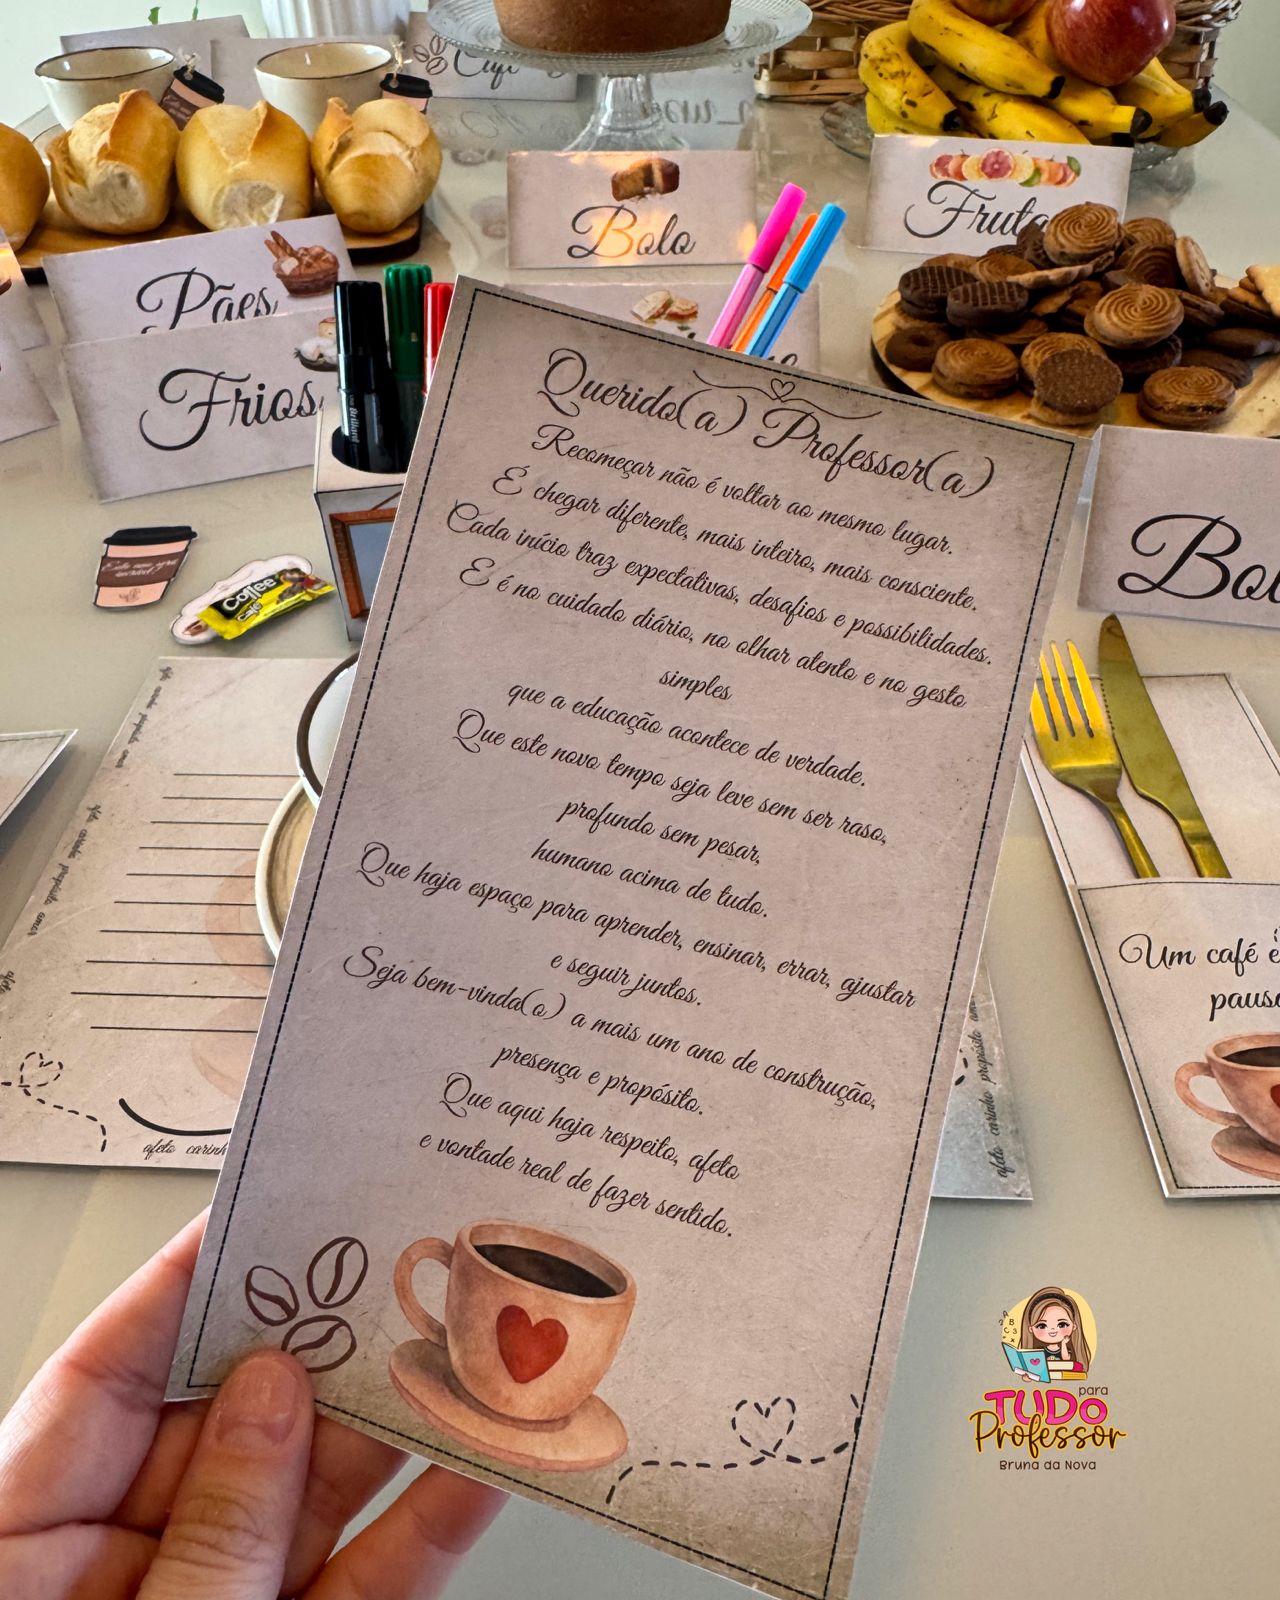 Café
Bolo
Frutas
Pães
Frios
Querido(a) Professor(a)
Recomeçar não é voltar ao mesmo lugar.
É chegar diferente, mais inteiro, mais consciente.
Cada início traz expectativas, desafios e possibilidades.
E é no cuidado diário, no olhar atento e no gesto
simples
que a educação acontece de verdade.
Que este novo tempo seja leve sem ser raso,
profundo sem pesar,
humano acima de tudo.
Que haja espaço para aprender, ensinar, errar, ajustar
e seguir juntos.
Seja bem-vinda(o) a mais um ano de construção,
presença e propósito.
Que aqui haja respeito, afeto
e vontade real de fazer sentido.
Bol
Coffee
Um café e
pausa
afeto carinh
afeto carinho propósito am
para
TUDO
Professor
Bruna da Nova